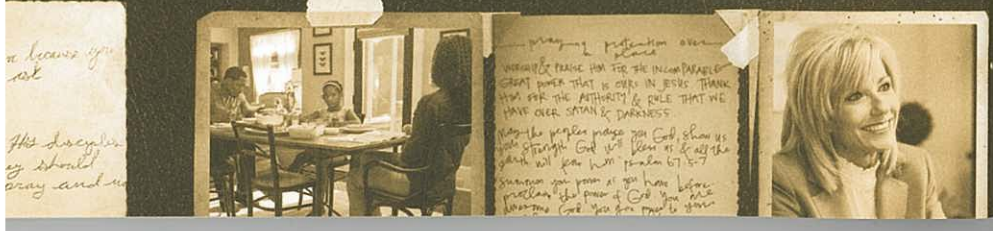 because you
ask
His disciples
should
pray and
praying protection over
a place
WORSHIP & PRAISE HIM FOR THE INCOMPARABLE
GREAT POWER THAT IS OURS IN JESUS. THANK
HIM FOR THE AUTHORITY & RULE THAT WE
HAVE OVER SATAN & DARKNESS.
may the peoples praise you God, show us
your strength God will bless us & all the
earth will fear him psalm 67:5-7
summon your power as you have before
proclaim the power of God you are
awesome God. You give power to your